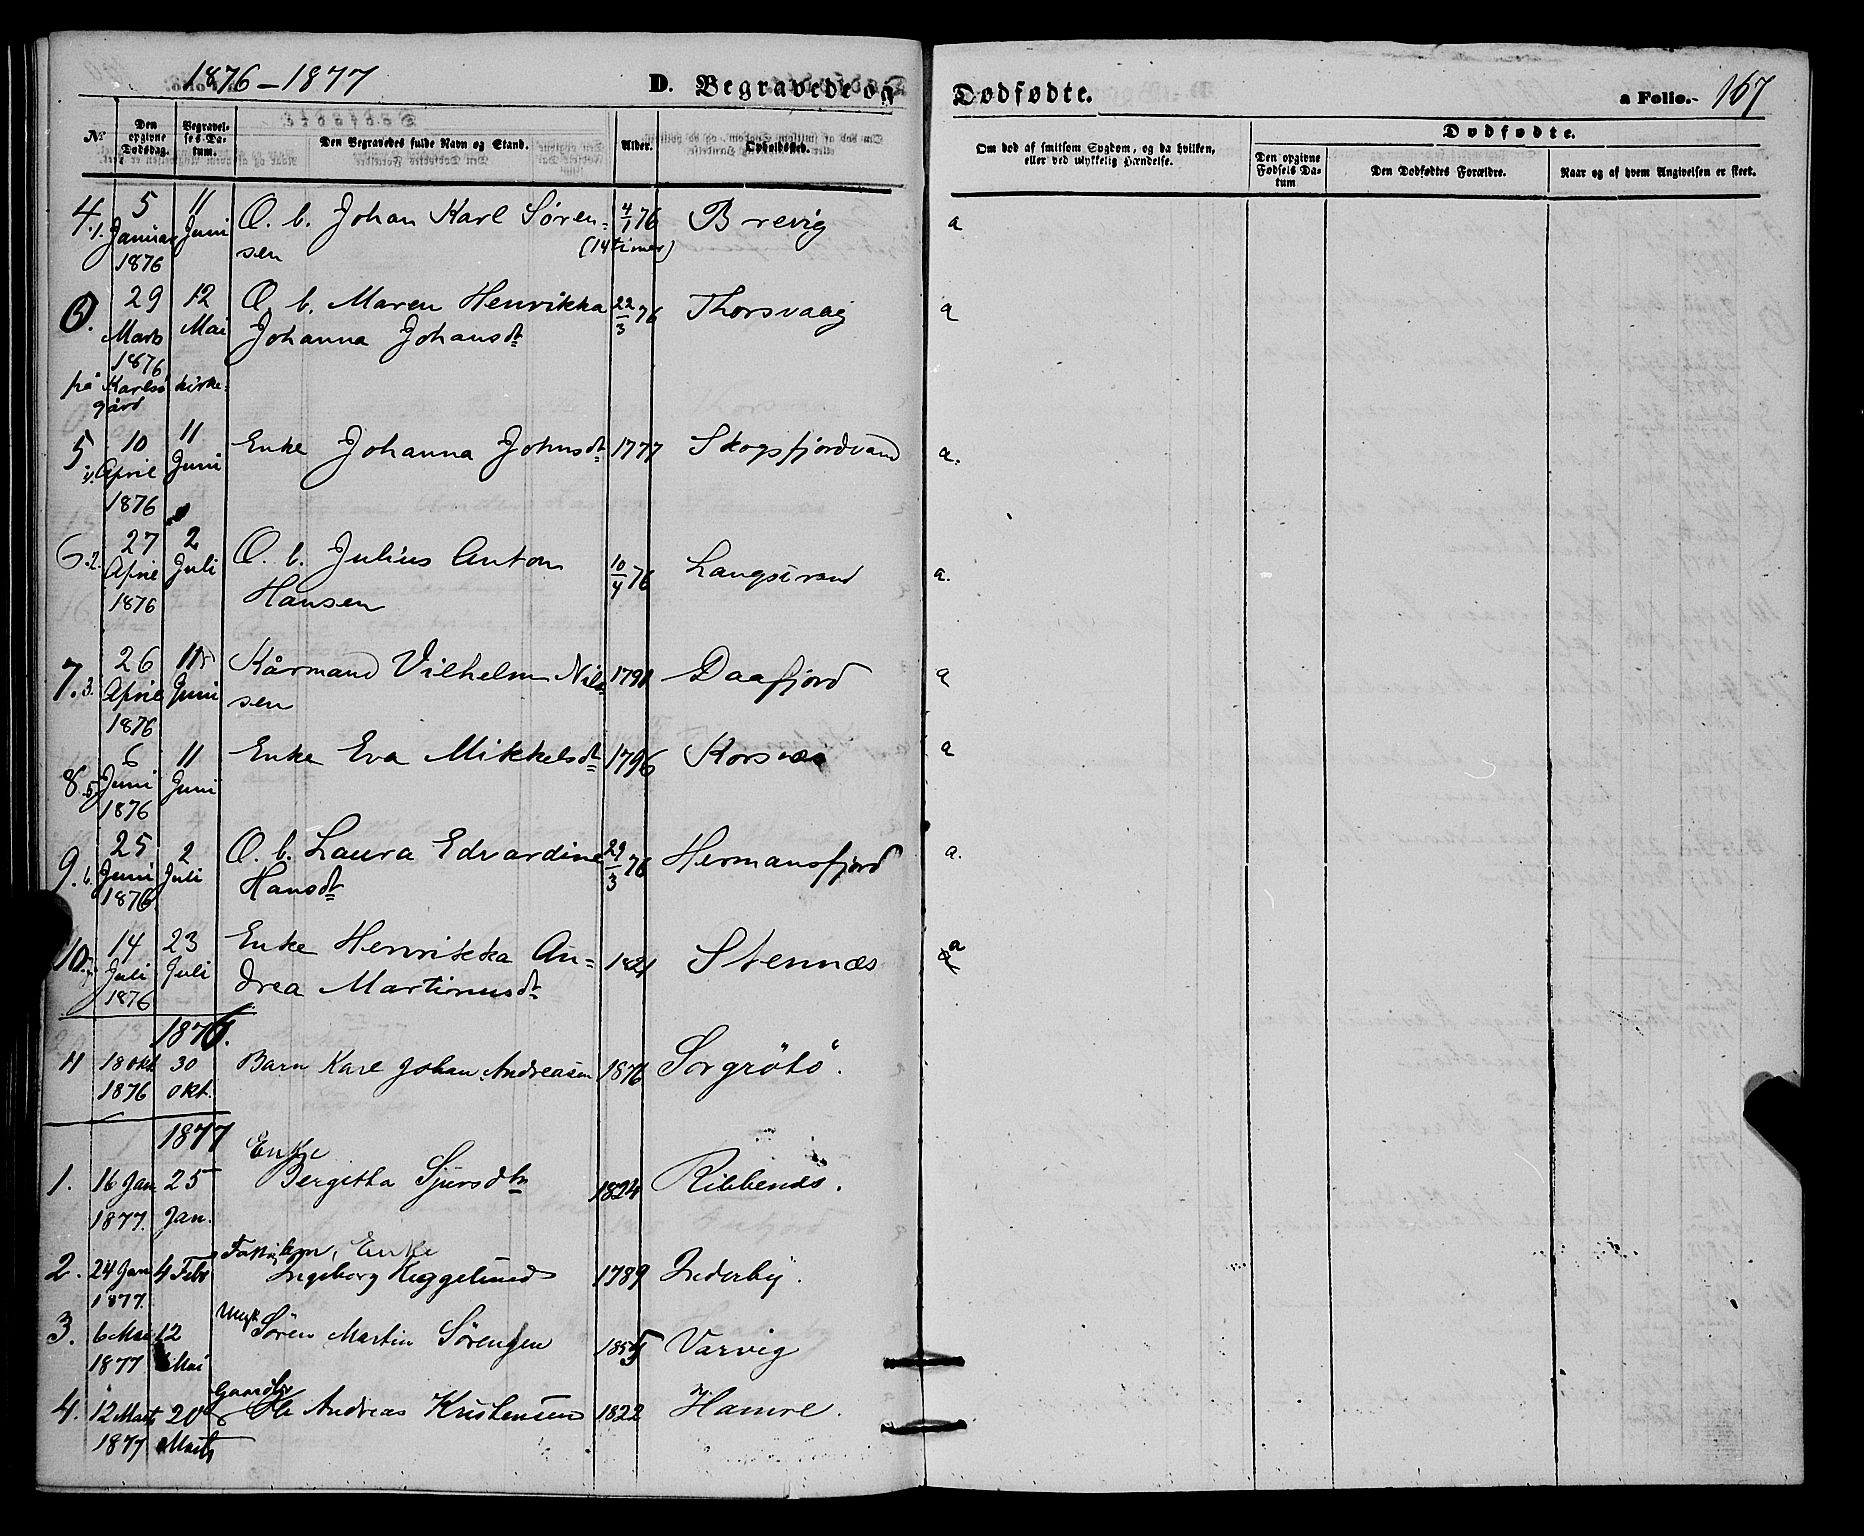 1876-1877 D. Begravede og Dødfødte. a Folio. 167
No Den opgivne Dødsdag. Begravelses-Datum. Den Begravedes fulde Navn og Stand. Alder. Opholdssted. Om død af smitsom Sygdom, og da hvilken, eller ved ulykkelig Hændelse. Dødfødte.
Den opgivne Fødsels Datum Den Dødfødtes Forældre. Naar og af hvem Angivelsen er skeet.
4. 1. 5 11 O. b. Johan Karl Søren- 4/1 76 Brevig a
Januar Juni sen (14 timer)
1876
29 12 O. b. Maren Henrikka 22/3 76 Thorsvaag a
Marts Mai Johanna Johansdt
1876
på Karlsø kirke-
gård
5 10 11 Enke Johanna Johnsdt 1777 Skogsfjordvand a.
April Juni
1876
6. 2. 27 2 O. b. Julius Anton 10/4 76 Langstrand a.
April Juli Hansen
1876
7. 3. 26 11 Kårmand Vilhelm Nils- 1791 Daafjord a
April Juni sen
1876
8 6 11 Enke Eva Mikkelsdt 1796 Korsnæs a
Juni Juni
1876
9. 6. 25 2 O. b. Laura Edvardine 29/3 76 Hermansfjord a.
Juni Juli Hansdt
1876
10. 14 23 Enke Henrikka An- 1821 Stennæs a
Juli Juli drea Martinusdt
1876
1876.
11 18 Okt 30 Barn Karl Johan Andreasen 1876 Sorgrötö.
1876 Okt.
1877
Enke
1. 16 Jan 25 Bergitha Sjursdtr 1824 Ribbenæs.
1877. Jan.
Fattiglem, Enke
2. 24 Jan 4 Febr Ingeborg Kiggelund 1789 Inderby.
1877.
Ungk
3. 6 Mai 12 Sören Martin Sörensen 1855 Varvig
1877 Mai
Gaardbr
4. 12 Marts 20 Ole Andreas Kristensen 1822 Hamre.
1877 Marts